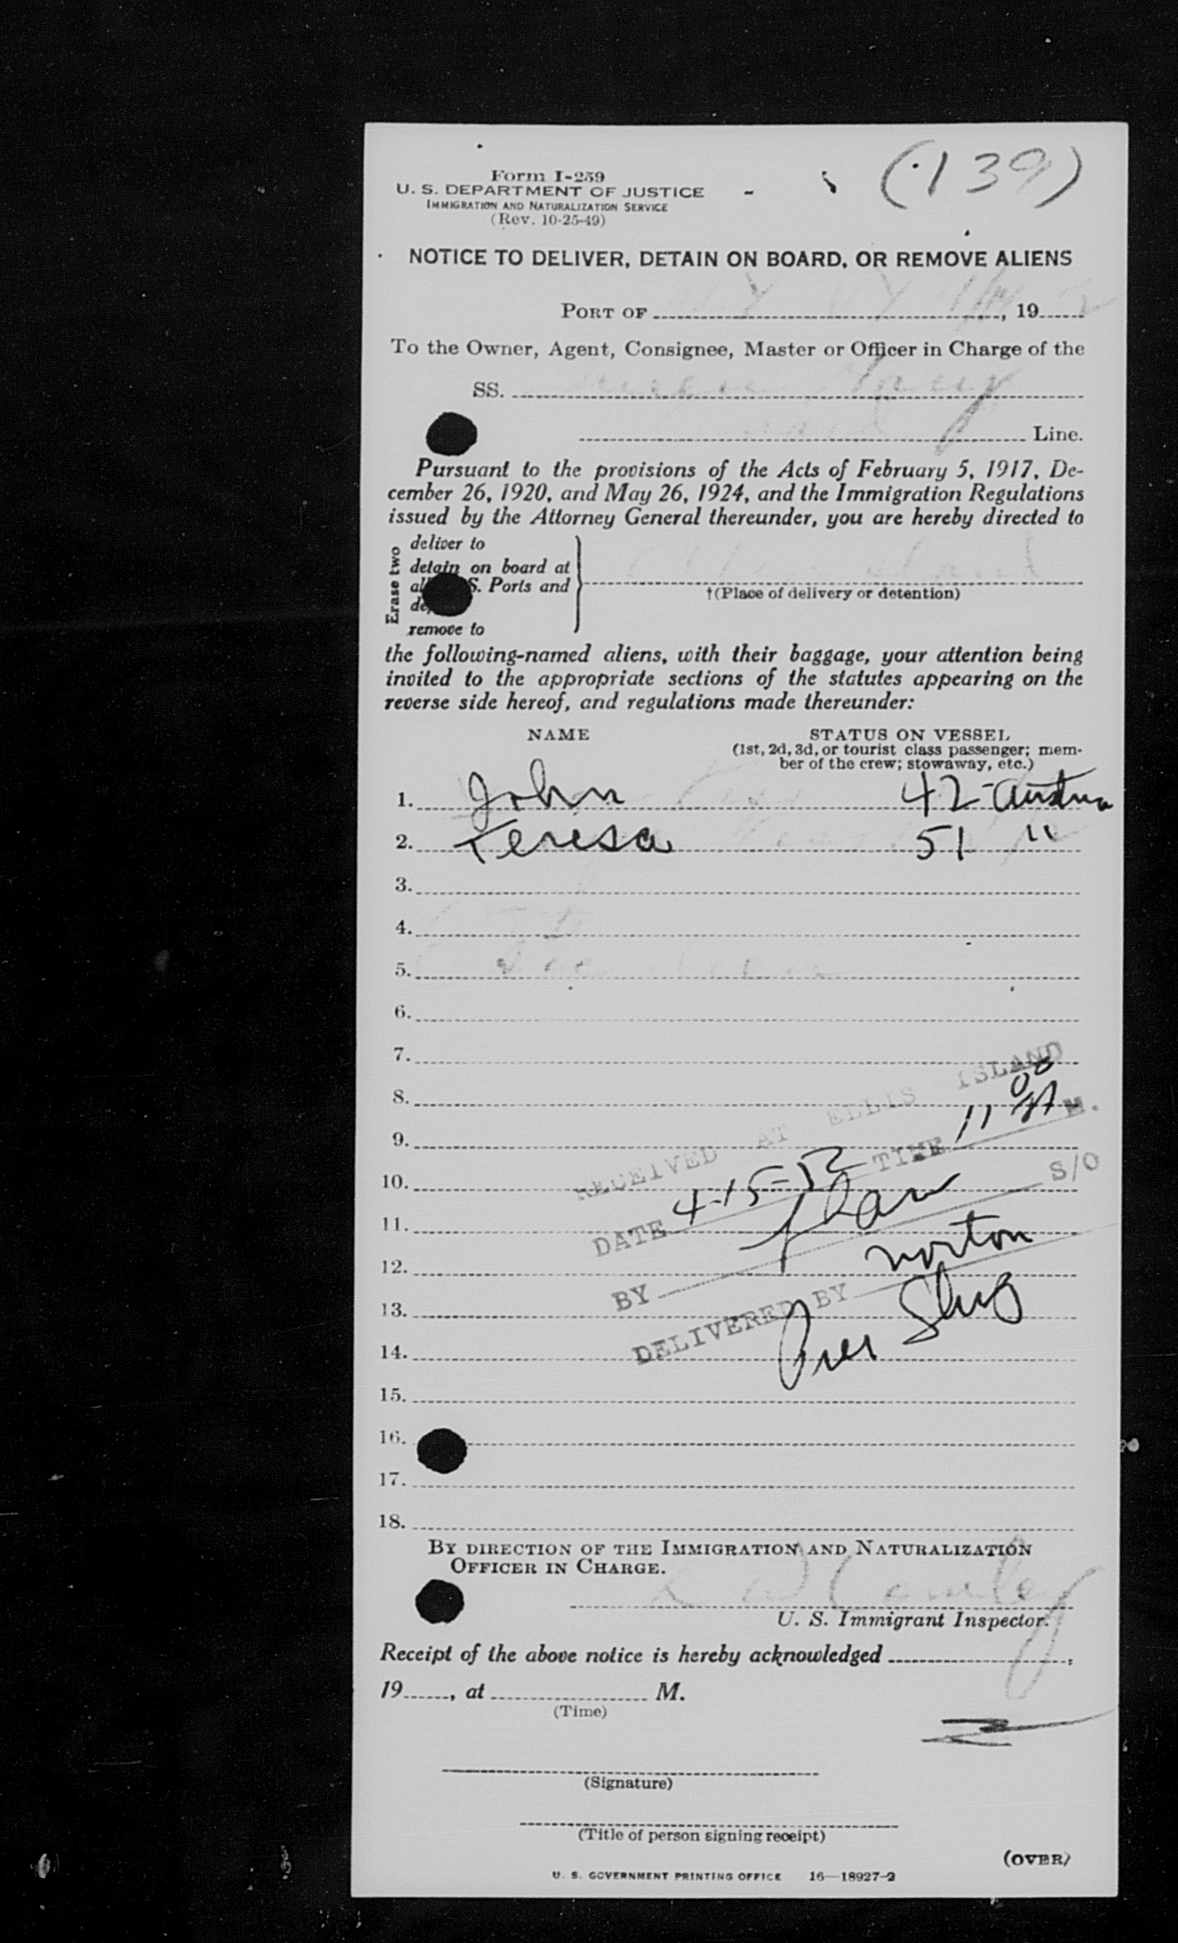 (139)
Form I-259
U. S. DEPARTMENT OF JUSTICE
IMMIGRATION AND NATURALIZATION SERVICE
(Rev. 10-25-49)
NOTICE TO DELIVER, DETAIN ON BOARD, OR REMOVE ALIENS
PORT OF , 19
To the Owner, Agent, Consignee, Master or Officer in Charge of the
SS.
Line.
Pursuant to the provisions of the Acts of February 5, 1917, De-
cember 26, 1920, and May 26, 1924, and the Immigration Regulations
issued by the Attorney General thereunder, you are hereby directed to
Erase two
deliver to
detain on board at
S. Ports and
remove to
†(Place of delivery or detention)
the following-named aliens, with their baggage, your attention being
invited to the appropriate sections of the statutes appearing on the
reverse side hereof, and regulations made thereunder:
NAME STATUS ON VESSEL
(1st, 2d, 3d, or tourist class passenger; mem-
ber of the crew; stowaway, etc.)
1. John 42 - Austria
2. Teresa 51 "
3.
4.
5.
6.
7.
8.
9.
10.
11.
12.
13.
14.
15.
16.
17.
18.
RECEIVED AT ELLIS ISLAND
DATE 4-15-52 TIME 11 00 A M.
BY S/O
DELIVERED BY Norton
BY DIRECTION OF THE IMMIGRATION AND NATURALIZATION
OFFICER IN CHARGE.
U. S. Immigrant Inspector.
Receipt of the above notice is hereby acknowledged ,
19 , at M.
(Time)
(Signature)
(Title of person signing receipt)
(OVER)
U. S. GOVERNMENT PRINTING OFFICE 16—18927-2